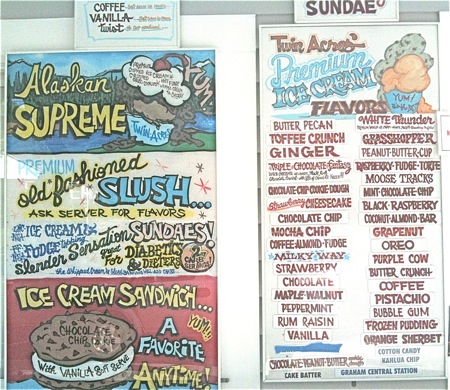 COFFEE
VANILLA
twist
Alaskan
SUPREME
YUM!
TWIN ACRES
PREMIUM
old fashioned
SLUSH...
ASK SERVER FOR FLAVORS
ICE CREAM & SUNDAES!
FUDGE topping
Slender Sensation
great for DIABETICS
& DIETERS
ICE CREAM SANDWICH...
YUM!
CHOCOLATE
CHIP COOKIE
WITH VANILLA SOFT SERVE
A
FAVORITE
ANYTIME!
SUNDAES
Twin Acres
Premium
ICE CREAM
FLAVORS
YUM!
BUTTER PECAN
TOFFEE CRUNCH
GINGER
TRIPLE-CHOCOLATE-fantasy
CHOCOLATE-CHIP-COOKIE-DOUGH
strawberry CHEESECAKE
CHOCOLATE CHIP
MOCHA CHIP
COFFEE-ALMOND-FUDGE
MILKY WAY
STRAWBERRY
CHOCOLATE
MAPLE-WALNUT
PEPPERMINT
RUM RAISIN
VANILLA
CHOCOLATE-PEANUT-BUTTER
CAKE BATTER
WHITE Thunder
GRASSHOPPER
PEANUT-BUTTER-CUP
RASPBERRY-FUDGE-TORTE
MOOSE TRACKS
MINT-CHOCOLATE-CHIP
BLACK RASPBERRY
COCONUT-ALMOND-BAR
GRAPENUT
OREO
PURPLE COW
BUTTER CRUNCH
COFFEE
PISTACHIO
BUBBLE GUM
FROZEN PUDDING
ORANGE SHERBET
COTTON CANDY
KAHLUA CHIP
GRAHAM CENTRAL STATION